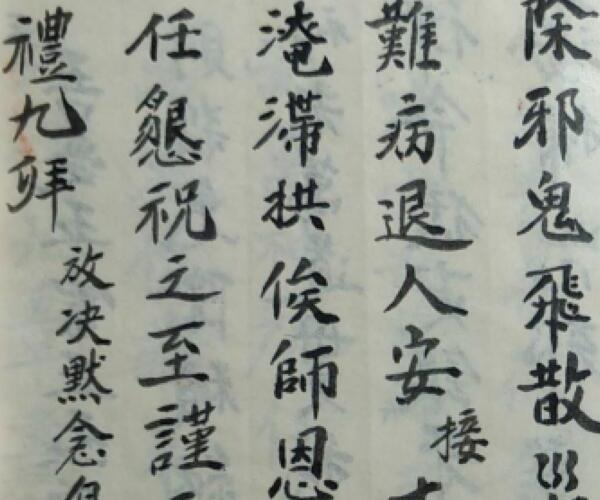 除邪鬼飛散
難病退人安
接
淹滯拱俟師恩
任懇祝之至謹
禮九拜
放决默念